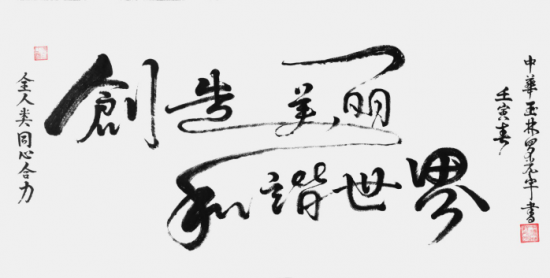 全人类同心合力
創造美丽
和諧世界
壬寅春
中華玉林罗 書